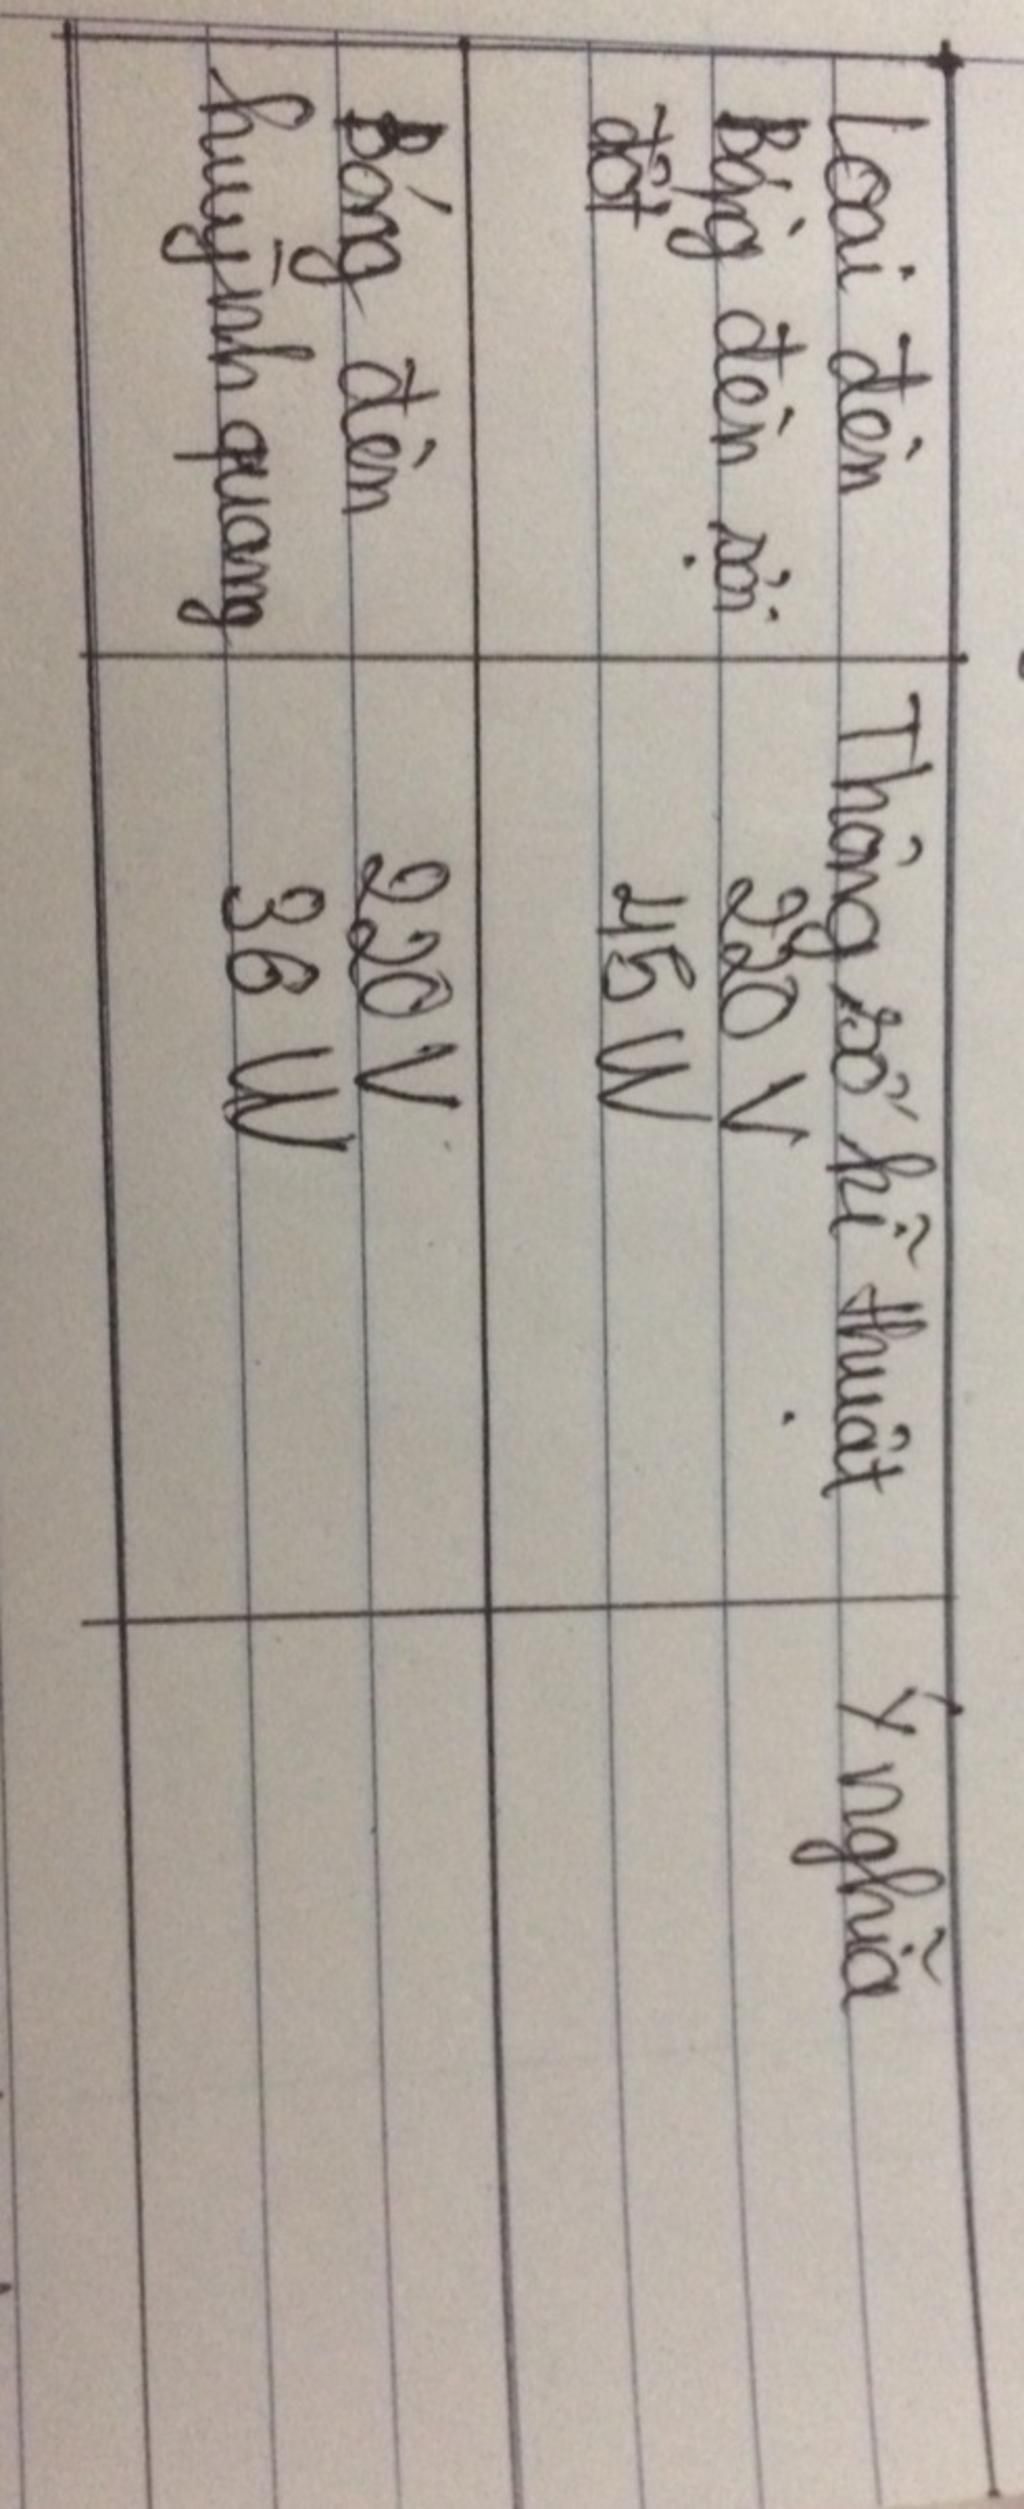 Loại đèn Thông số kĩ thuật Ý nghĩa
Bóng đèn sợi 220 V
đốt 45 W
Bóng đèn 220 V
huỳnh quang 36 W